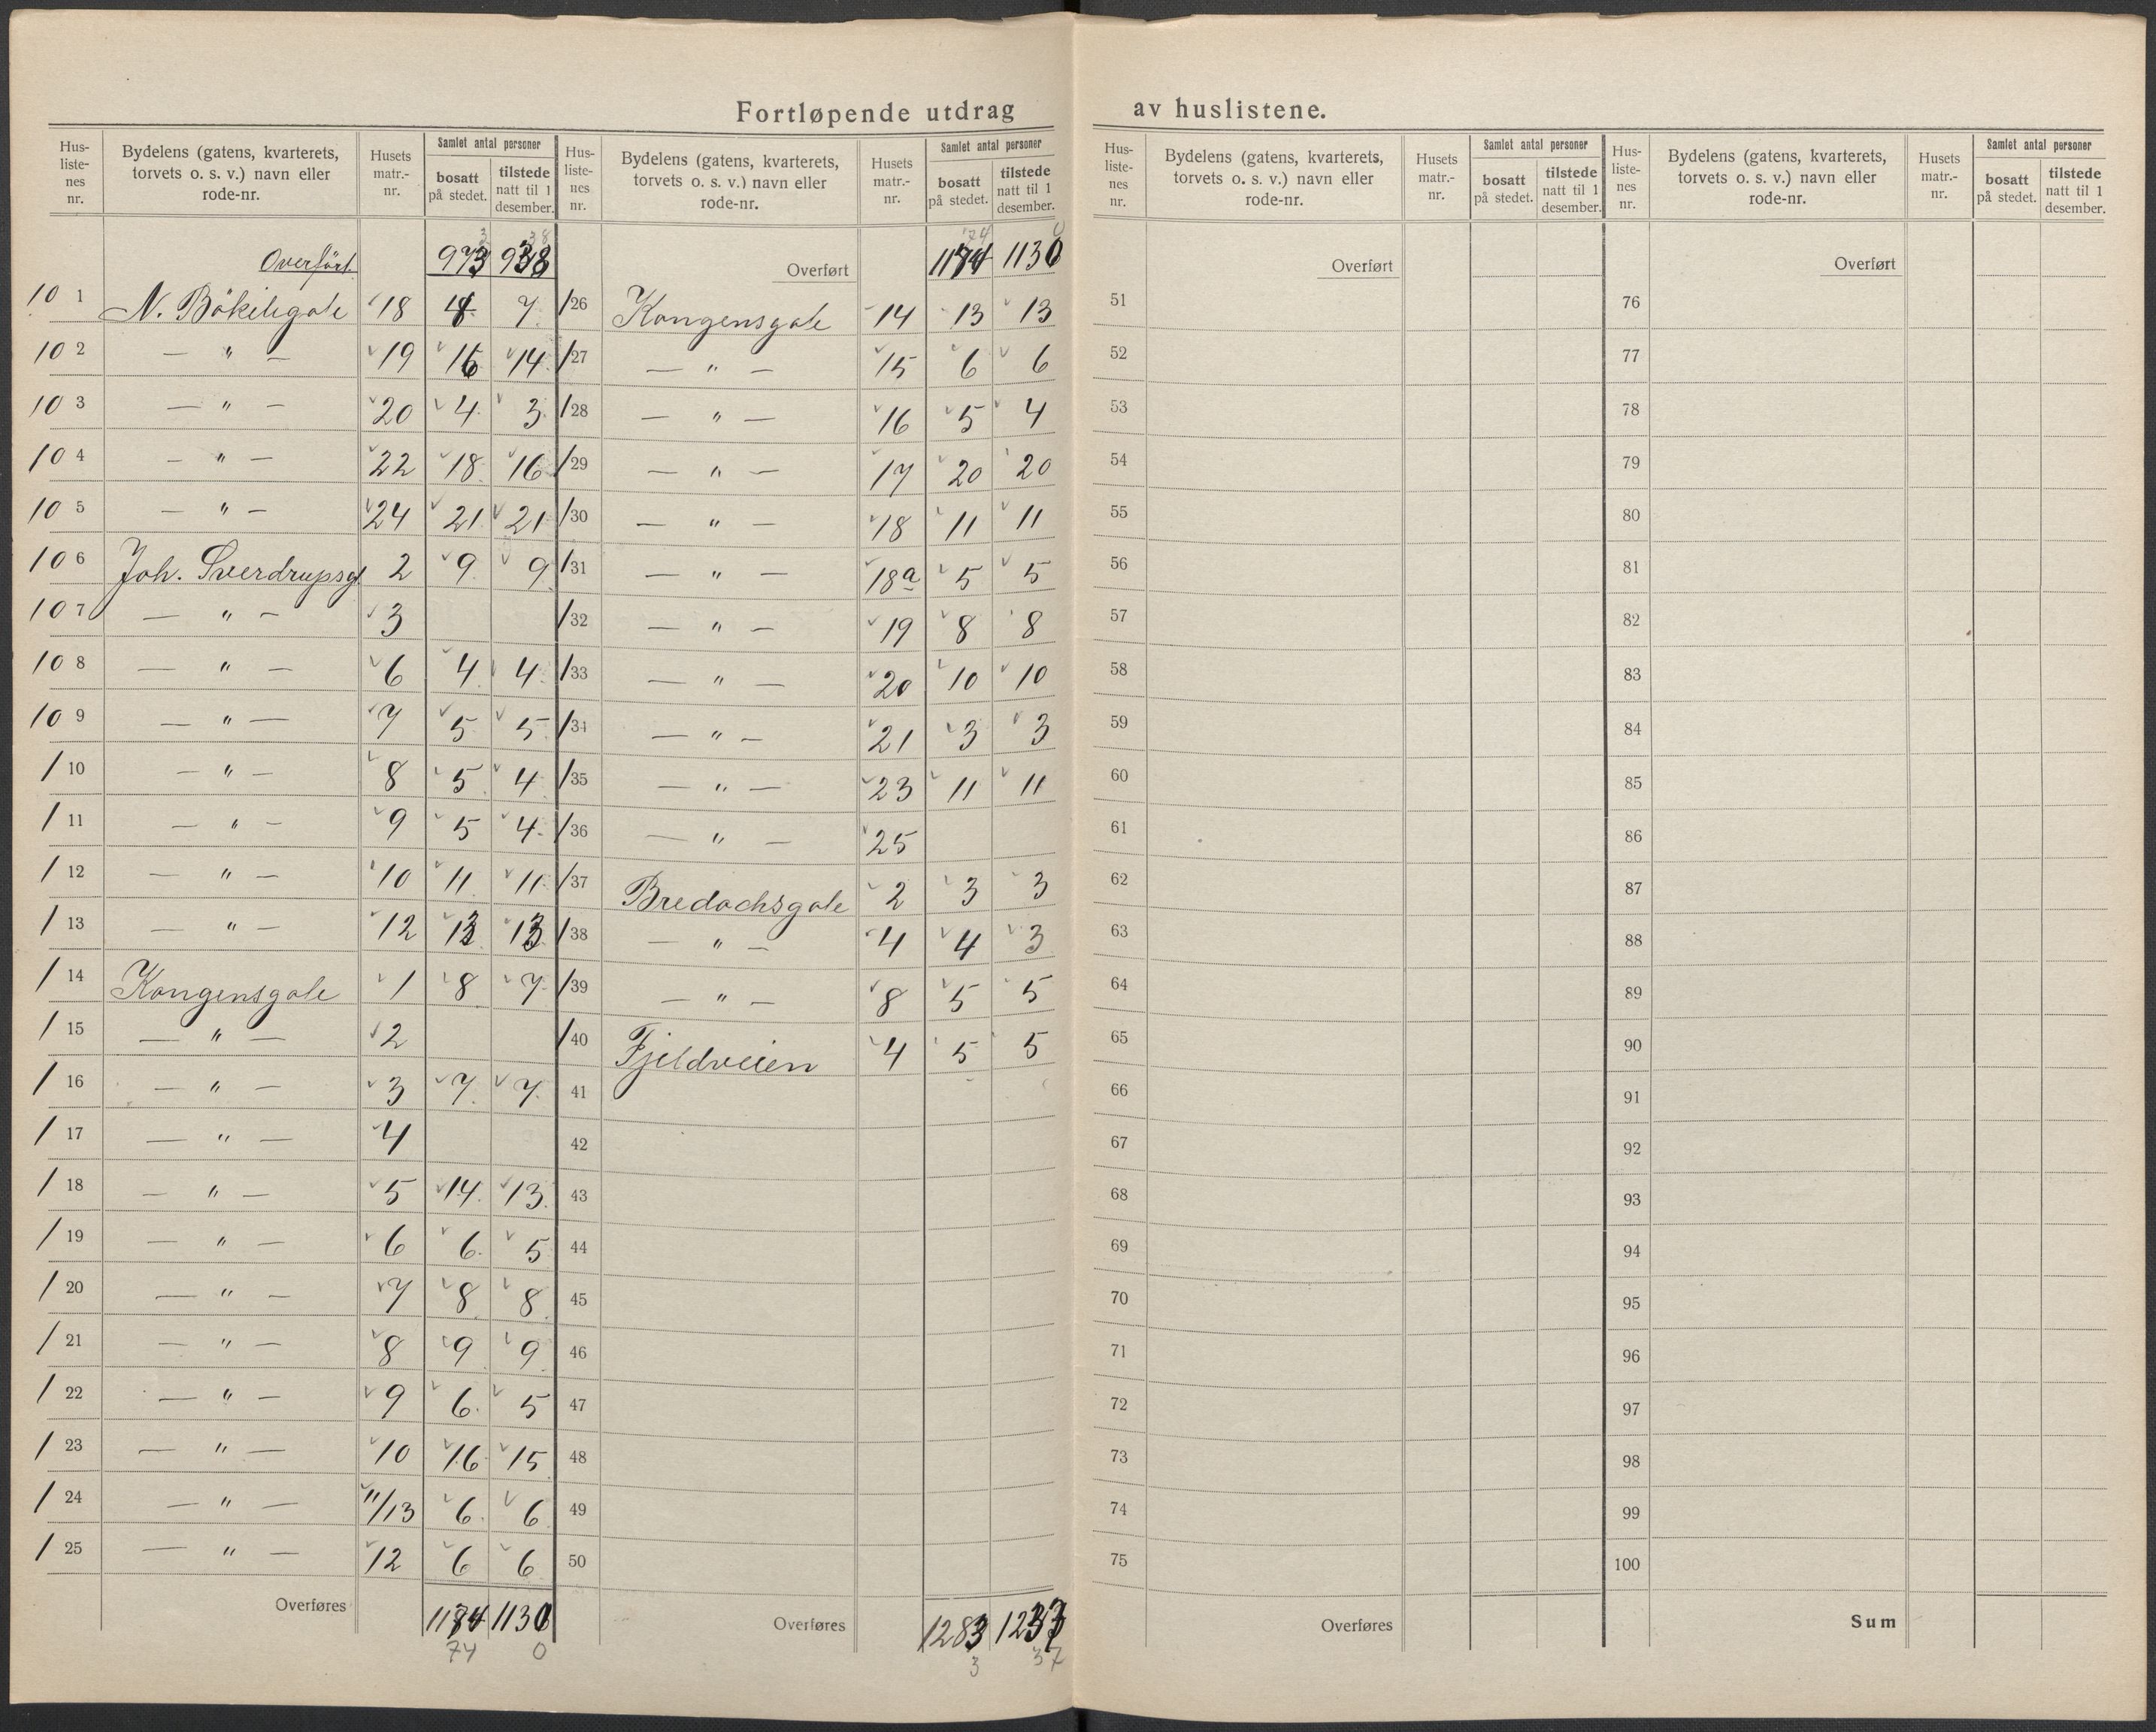 Fortløpende utdrag av huslistene.
Hus-listenes nr. | Bydelens (gatens, kvarterets, torvets o. s. v.) navn eller rode-nr. | Husets matr.-nr. | Samlet antal personer | bosatt på stedet. | tilstede natt til 1 desember.
Overført 973 938
3 38
10 1 N. Bökeligate 18 7
10 2 — " — 19 16 14
10 3 — " — 20 4 3
10 4 — " — 22 18 16
10 5 — " — 24 21 21
10 6 Joh. Sverdrupsgt 2 9 9
10 7 — " — 3
10 8 — " — 6 4 4
10 9 — " — 7 5 5
/ 10 — " — 8 5 4
/ 11 — " — 9 5 4
/ 12 — " — 10 11 11
/ 13 — " — 12 13 13
/ 14 Kongensgate 1 8 7
/ 15 — " — 2
/ 16 — " — 3 7 7
/ 17 — " — 4
/ 18 — " — 5 14 13
/ 19 — " — 6 6 5
/ 20 — " — 7 8 8
/ 21 — " — 8 9 9
/ 22 — " — 9 6 5
/ 23 — " — 10 16 15
/ 24 — " — 11/13 6 6
/ 25 — " — 12 6 6
Overføres 1174 1130
74 0
Hus-listenes nr. | Bydelens (gatens, kvarterets, torvets o. s. v.) navn eller rode-nr. | Husets matr.-nr. | Samlet antal personer | bosatt på stedet. | tilstede natt til 1 desember.
74 0
Overført 1174 1130
/26 Kongensgate 14 13 13
/27 — " — 15 6 6
/28 — " — 16 5 4
/29 — " — 17 20 20
/30 — " — 18 11 11
/31 — " — 18a 5 5
/32 — " — 19 8 8
/33 — " — 20 10 10
/34 — " — 21 3 3
/35 — " — 23 11 11
/36 — " — 25
/37 Bredochsgate 2 3 3
/38 — " — 4 4 3
/39 — " — 8 5 5
/40 Fjeldveien 4 5 5
41
42
43
44
45
46
47
48
49
50
Overføres 1283 1237
3 37
Hus-listenes nr. | Bydelens (gatens, kvarterets, torvets o. s. v.) navn eller rode-nr. | Husets matr.-nr. | Samlet antal personer | bosatt på stedet. | tilstede natt til 1 desember.
Overført
51
52
53
54
55
56
57
58
59
60
61
62
63
64
65
66
67
68
69
70
71
72
73
74
75
Overføres
Hus-listenes nr. | Bydelens (gatens, kvarterets, torvets o. s. v.) navn eller rode-nr. | Husets matr.-nr. | Samlet antal personer | bosatt på stedet. | tilstede natt til 1 desember.
Overført
76
77
78
79
80
81
82
83
84
85
86
87
88
89
90
91
92
93
94
95
96
97
98
99
100
Sum